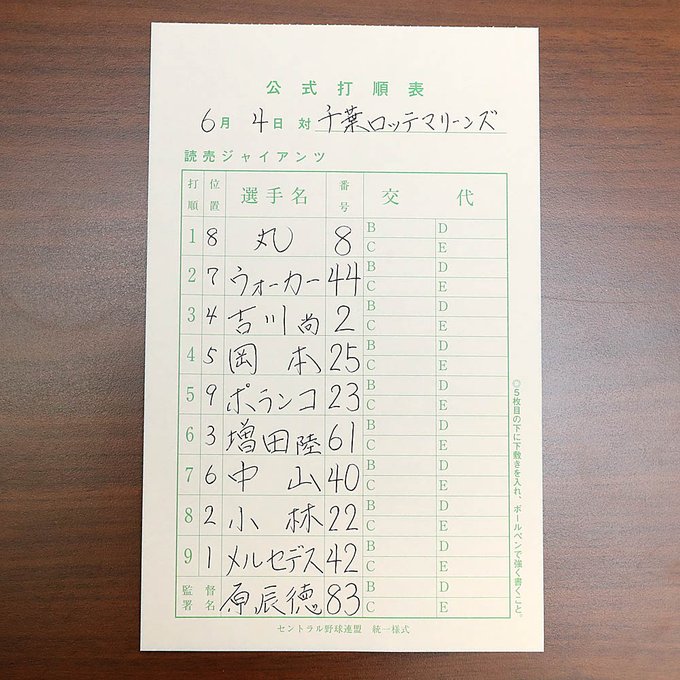 公式打順表
6月 4日 対 千葉ロッテマリーンズ
読売ジャイアンツ
打順 位置 選手名 番号 交代
1 8 丸 8 B C D E
2 7 ウォーカー 44 B C D E
3 4 吉川尚 2 B C D E
4 5 岡本 25 B C D E
5 9 ポランコ 23 B C D E
6 3 増田陸 61 B C D E
7 6 中山 40 B C D E
8 2 小林 22 B C D E
9 1 メルセデス 42 B C D E
監督署名 原辰徳 83 B C D E
セントラル野球連盟 統一様式
◎5枚目の下に下敷きを入れ、ボールペンで強く書くこと。